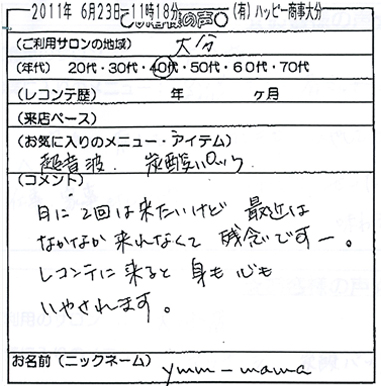 2011年 6月23日 11時18分 (有)ハッピー商事大分
○お客様の声○
(ご利用サロンの地域) 大分
(年代) 20代・30代・40代・50代・60代・70代
(レコンテ歴) 年 ヶ月
(来店ペース)
(お気に入りのメニュー・アイテム)
超音波. 炭酸パック.
(コメント)
月に2回は来たいけど 最近は
なかなか来れなくて 残念ですー。
レコンテに来ると 身も心も
いやされます。
お名前(ニックネーム) ymm-mama